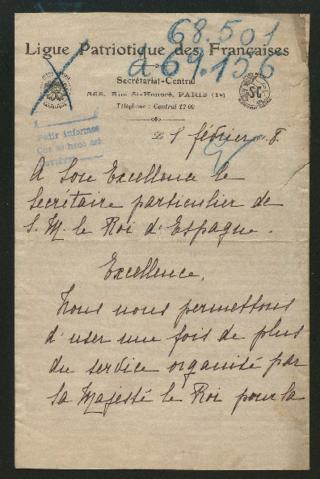 68.501
a 69.156
Ligue Patriotique des Françaises
Secrétariat-Central
368, Rue St-Honoré, PARIS (1er)
Téléphone : Central 17 00
Pedir informes
Le 1 février 8.
A Son Excellence le
Secrétaire particulier de
S. M. le Roi d'Espagne.
Excellence,
Nous nous permettons
d'user une fois de plus
du service organisé par
Sa Majesté le Roi pour la